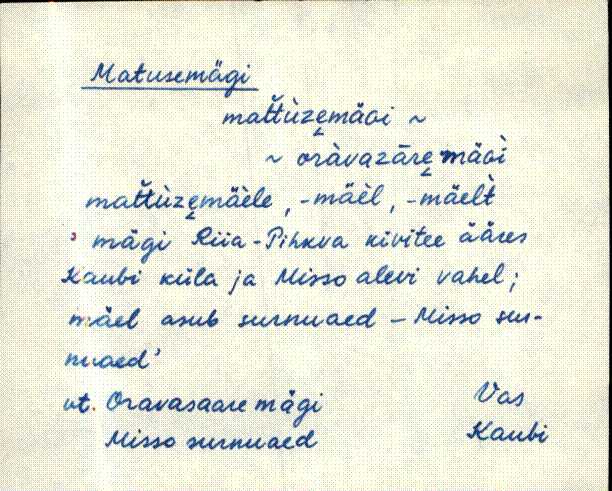 Matusemägi
mat̆t̆ùzęmäɢi ~
~ oràvazāŕe̬ mäɢì
mat̆t̆ùzęmäèle, -mäèl, -mäelt̀
' mägi Riia-Pihkva kivitee ääres
Kaubi küla ja Misso alevi vahel;
mäel asub surnuaed – Misso sur-
nuaed'
vt. Oravasaare mägi Vas
Misso surnuaed Kaubi